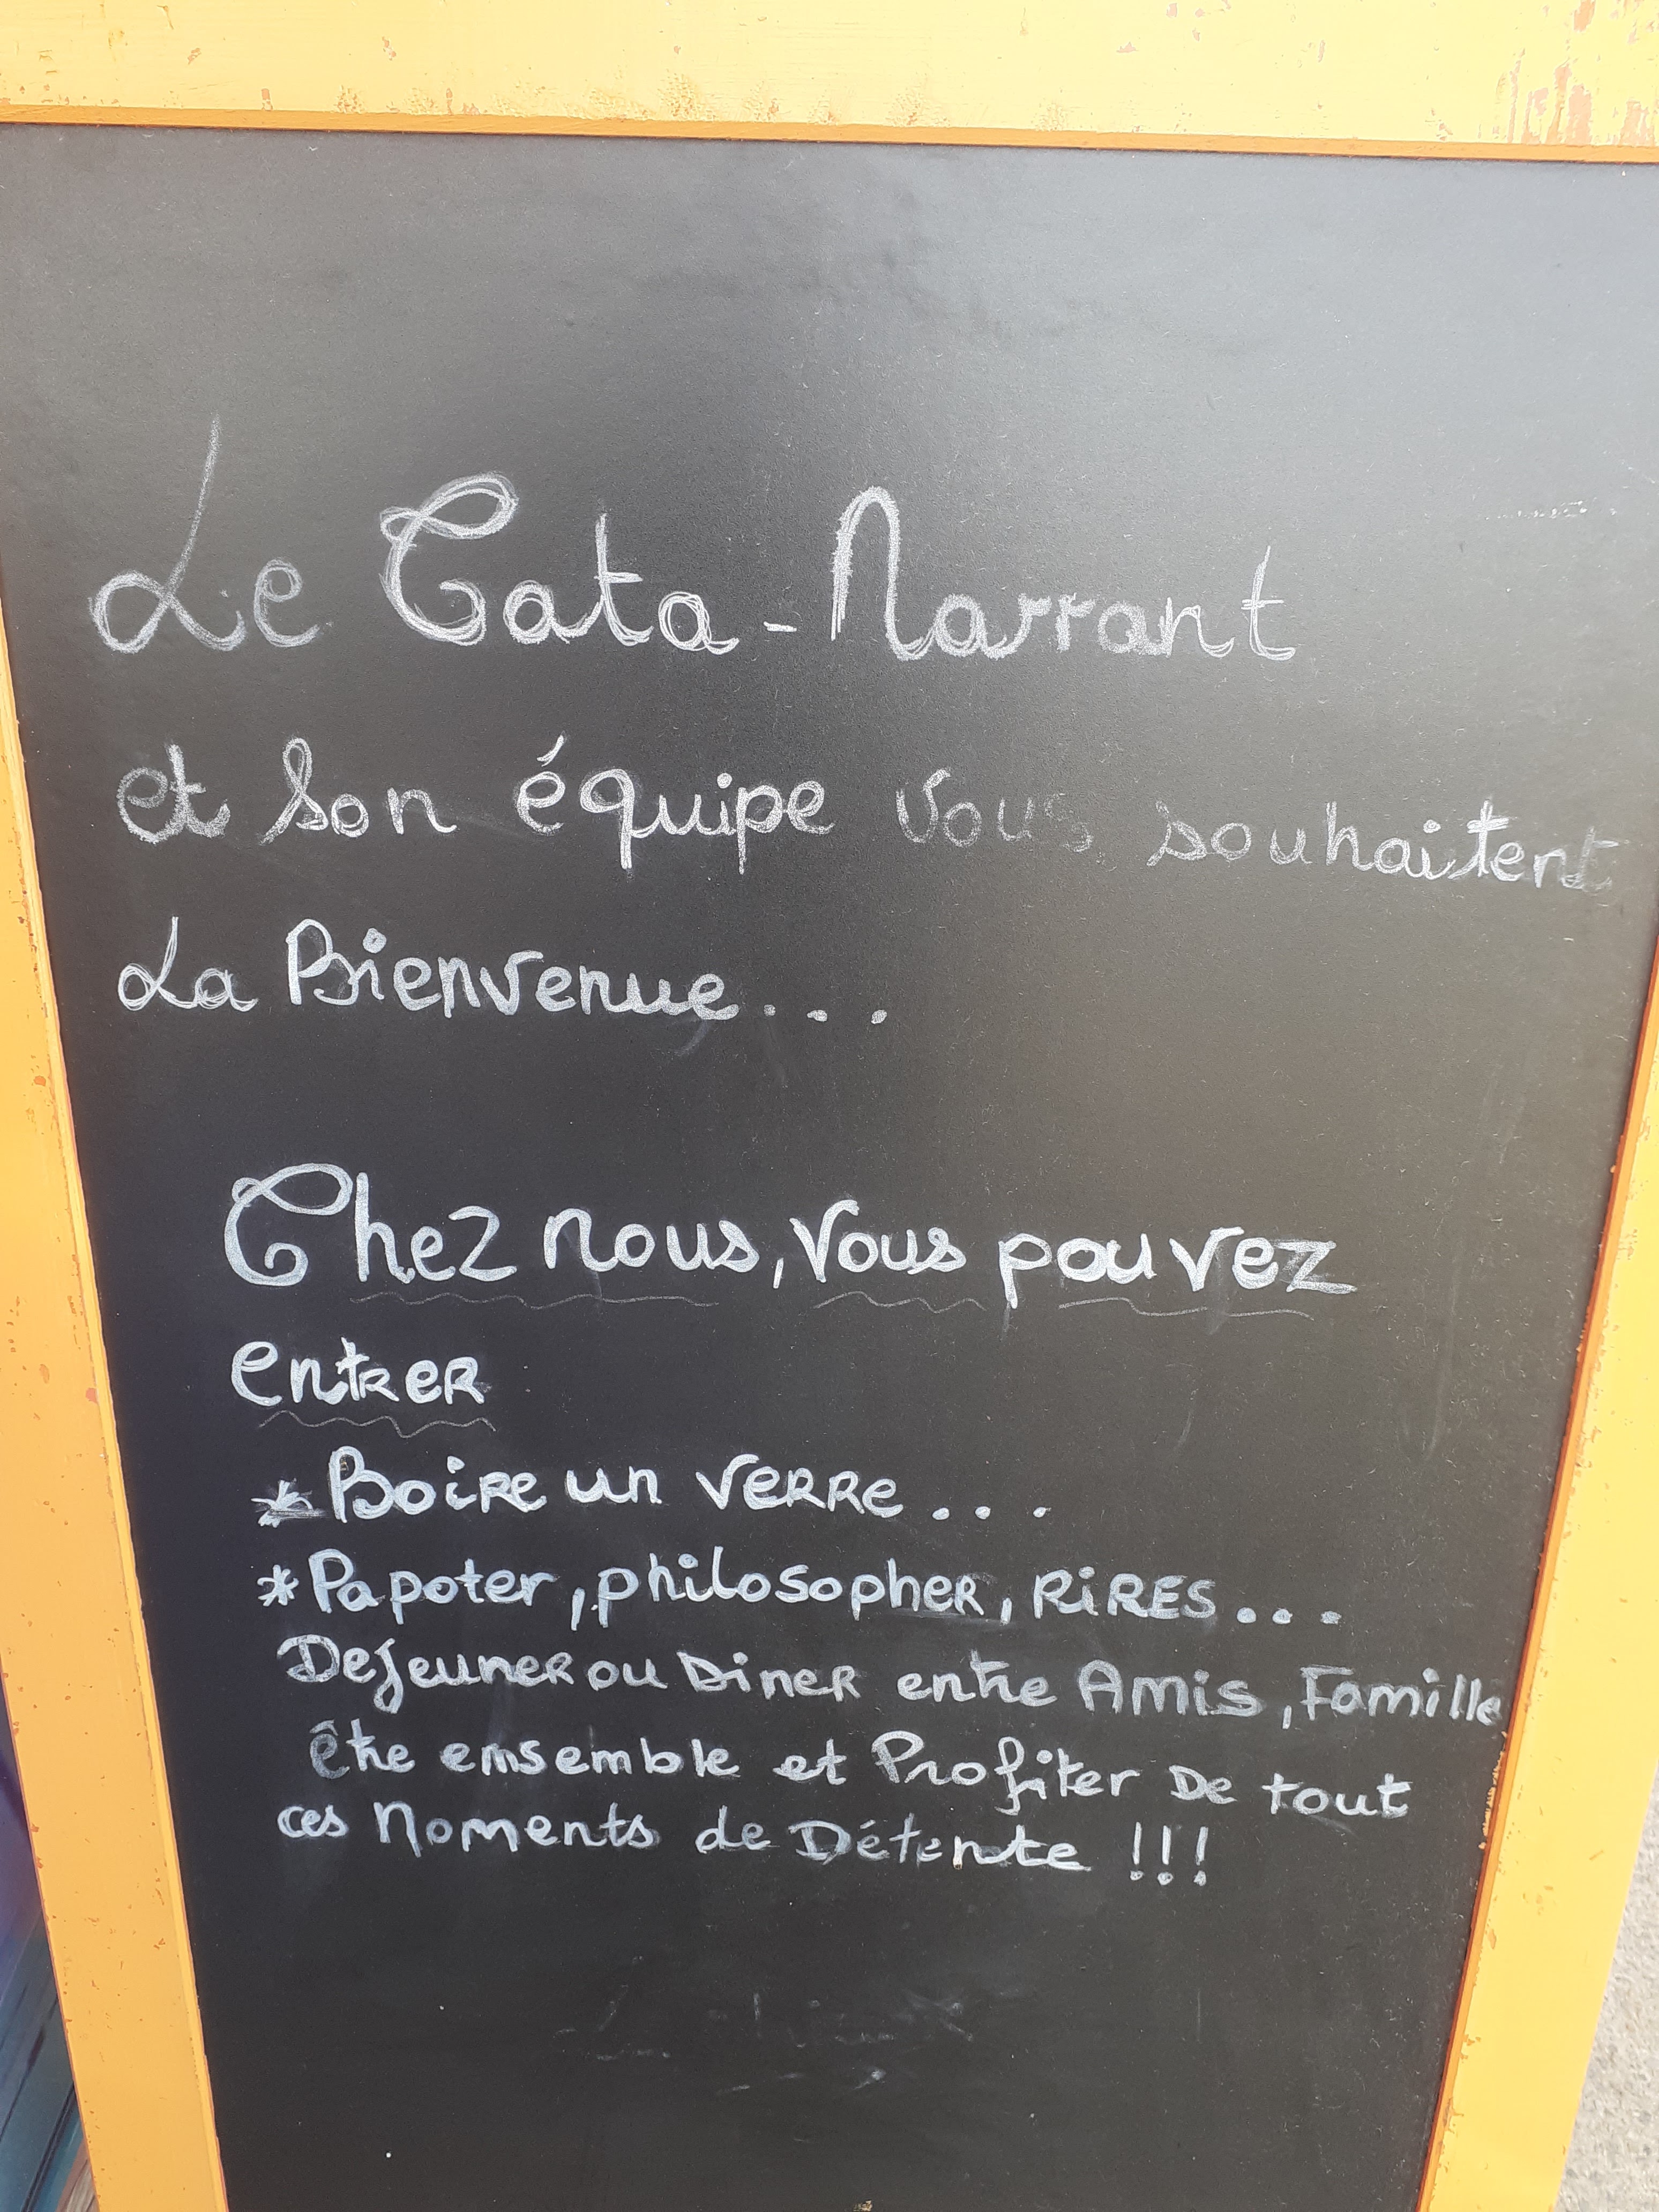 Le Cata-Narrant
et son équipe vous souhaitent
La Bienvenue...
Chez nous, vous pouvez
entrer
* Boire un verre...
* Papoter, philosopher, RIRES...
Dejeuner ou Diner entre Amis, Famille
être ensemble et Profiter De tout
ces Moments de Détente !!!